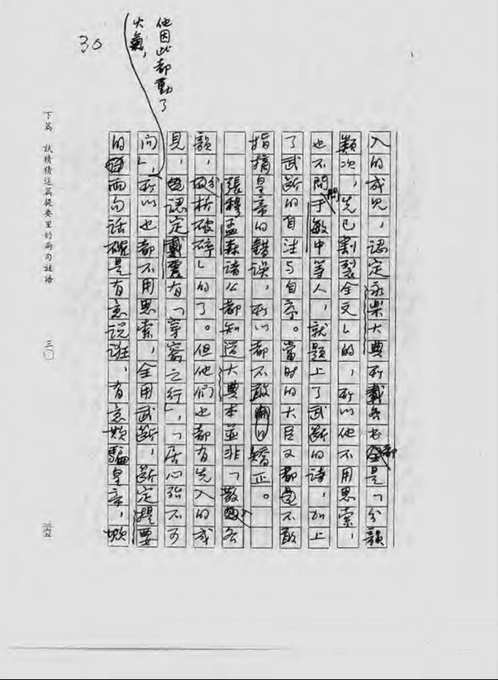 30
他因此都動了
火氣,
下篇 試猜猜這篇提要里的兩句謎語
三〇
入的成見,認定永樂大典所載各書都是「分韻
類次,先已割裂全文」的,所以他不用思索,
也不問問于敏中等人,就題上了武斷的詩,加上
了武斷的自注与自序。當時的大臣又都是不敢
指摘皇帝的錯誤,所以都不敢矯正。
張穆孟森諸公都知道大典本並非「散入各
韻,分析破碎」的了。但他們也都有先入的成
見,認定戴震有「穿窬之行」,「居心殆不可
問」,所以也都不用思索,全用武斷,斷定提要
的兩句話確是有意說謊,有意欺騙皇帝,欺